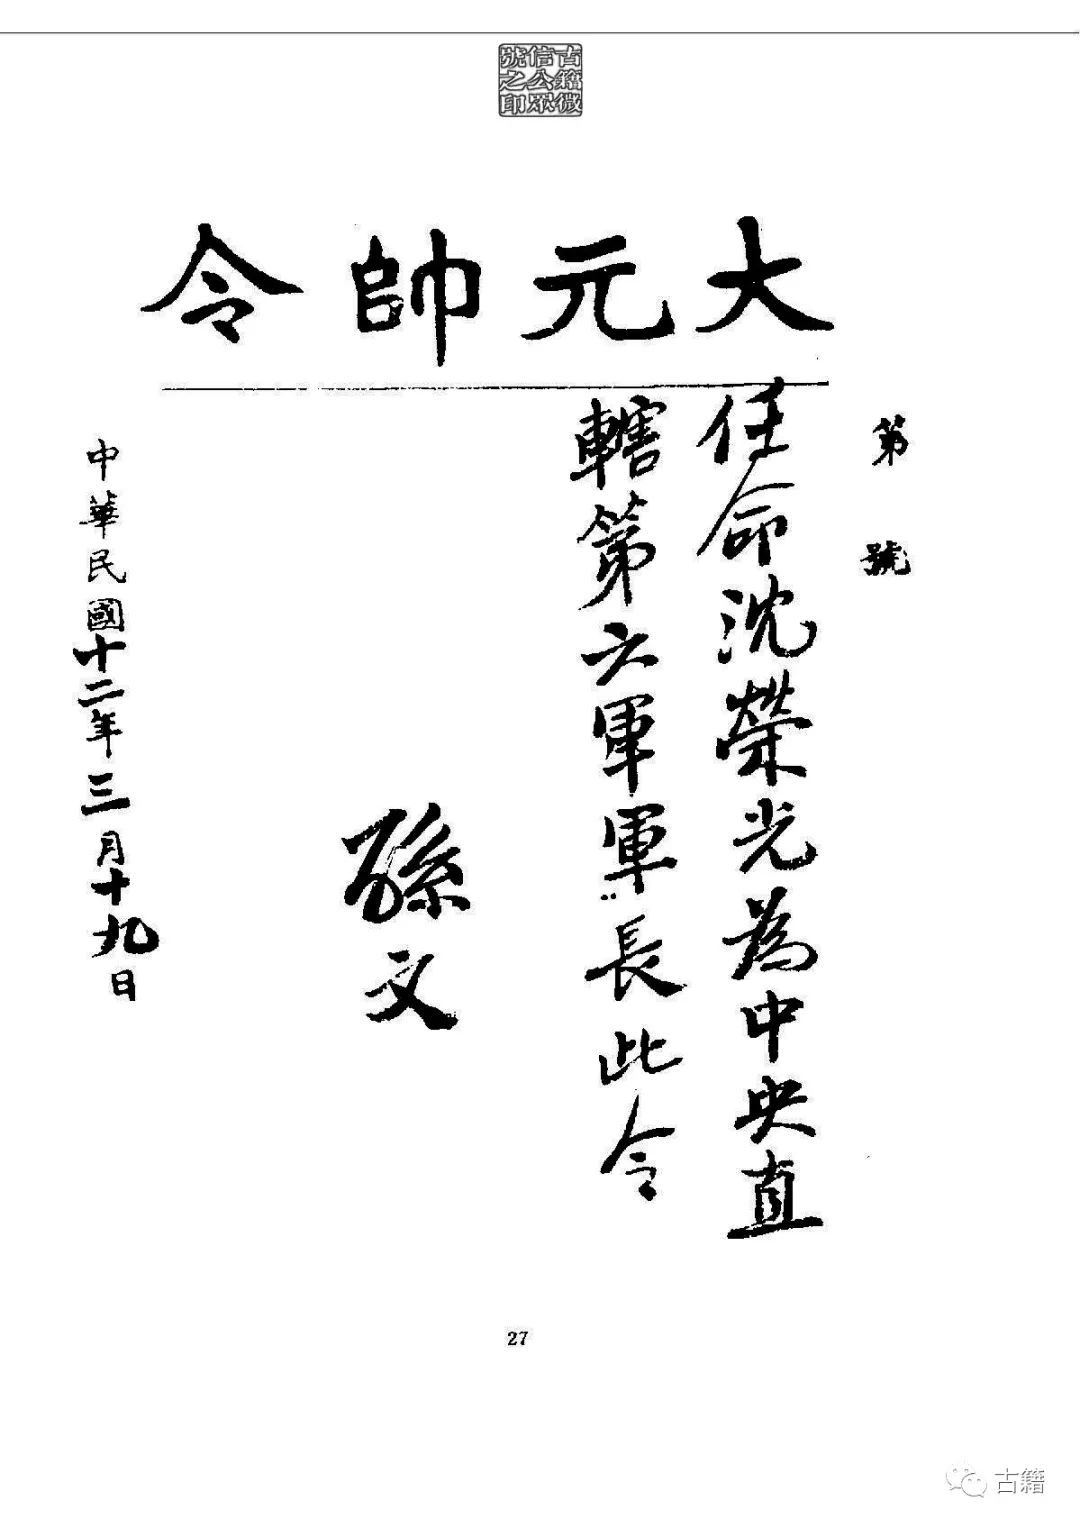 古籍微
信公眾
號之印
大元帥令
第　號
任命沈榮光為中央直
轄第六軍軍長此令
孫文
中華民國十二年三月十九日
27
古籍